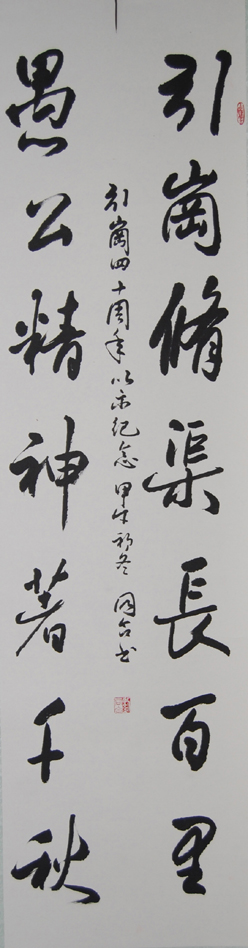 引崗脩渠長百里
愚公精神著千秋
引崗四十周年以示紀念 甲午初冬 國合书